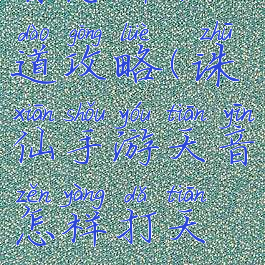 dào gōng lüè zhū
道攻略(诛
xiān shǒu yóu tiān yīn
仙手游天音
zěn yàng dǎ tiān
怎样打天